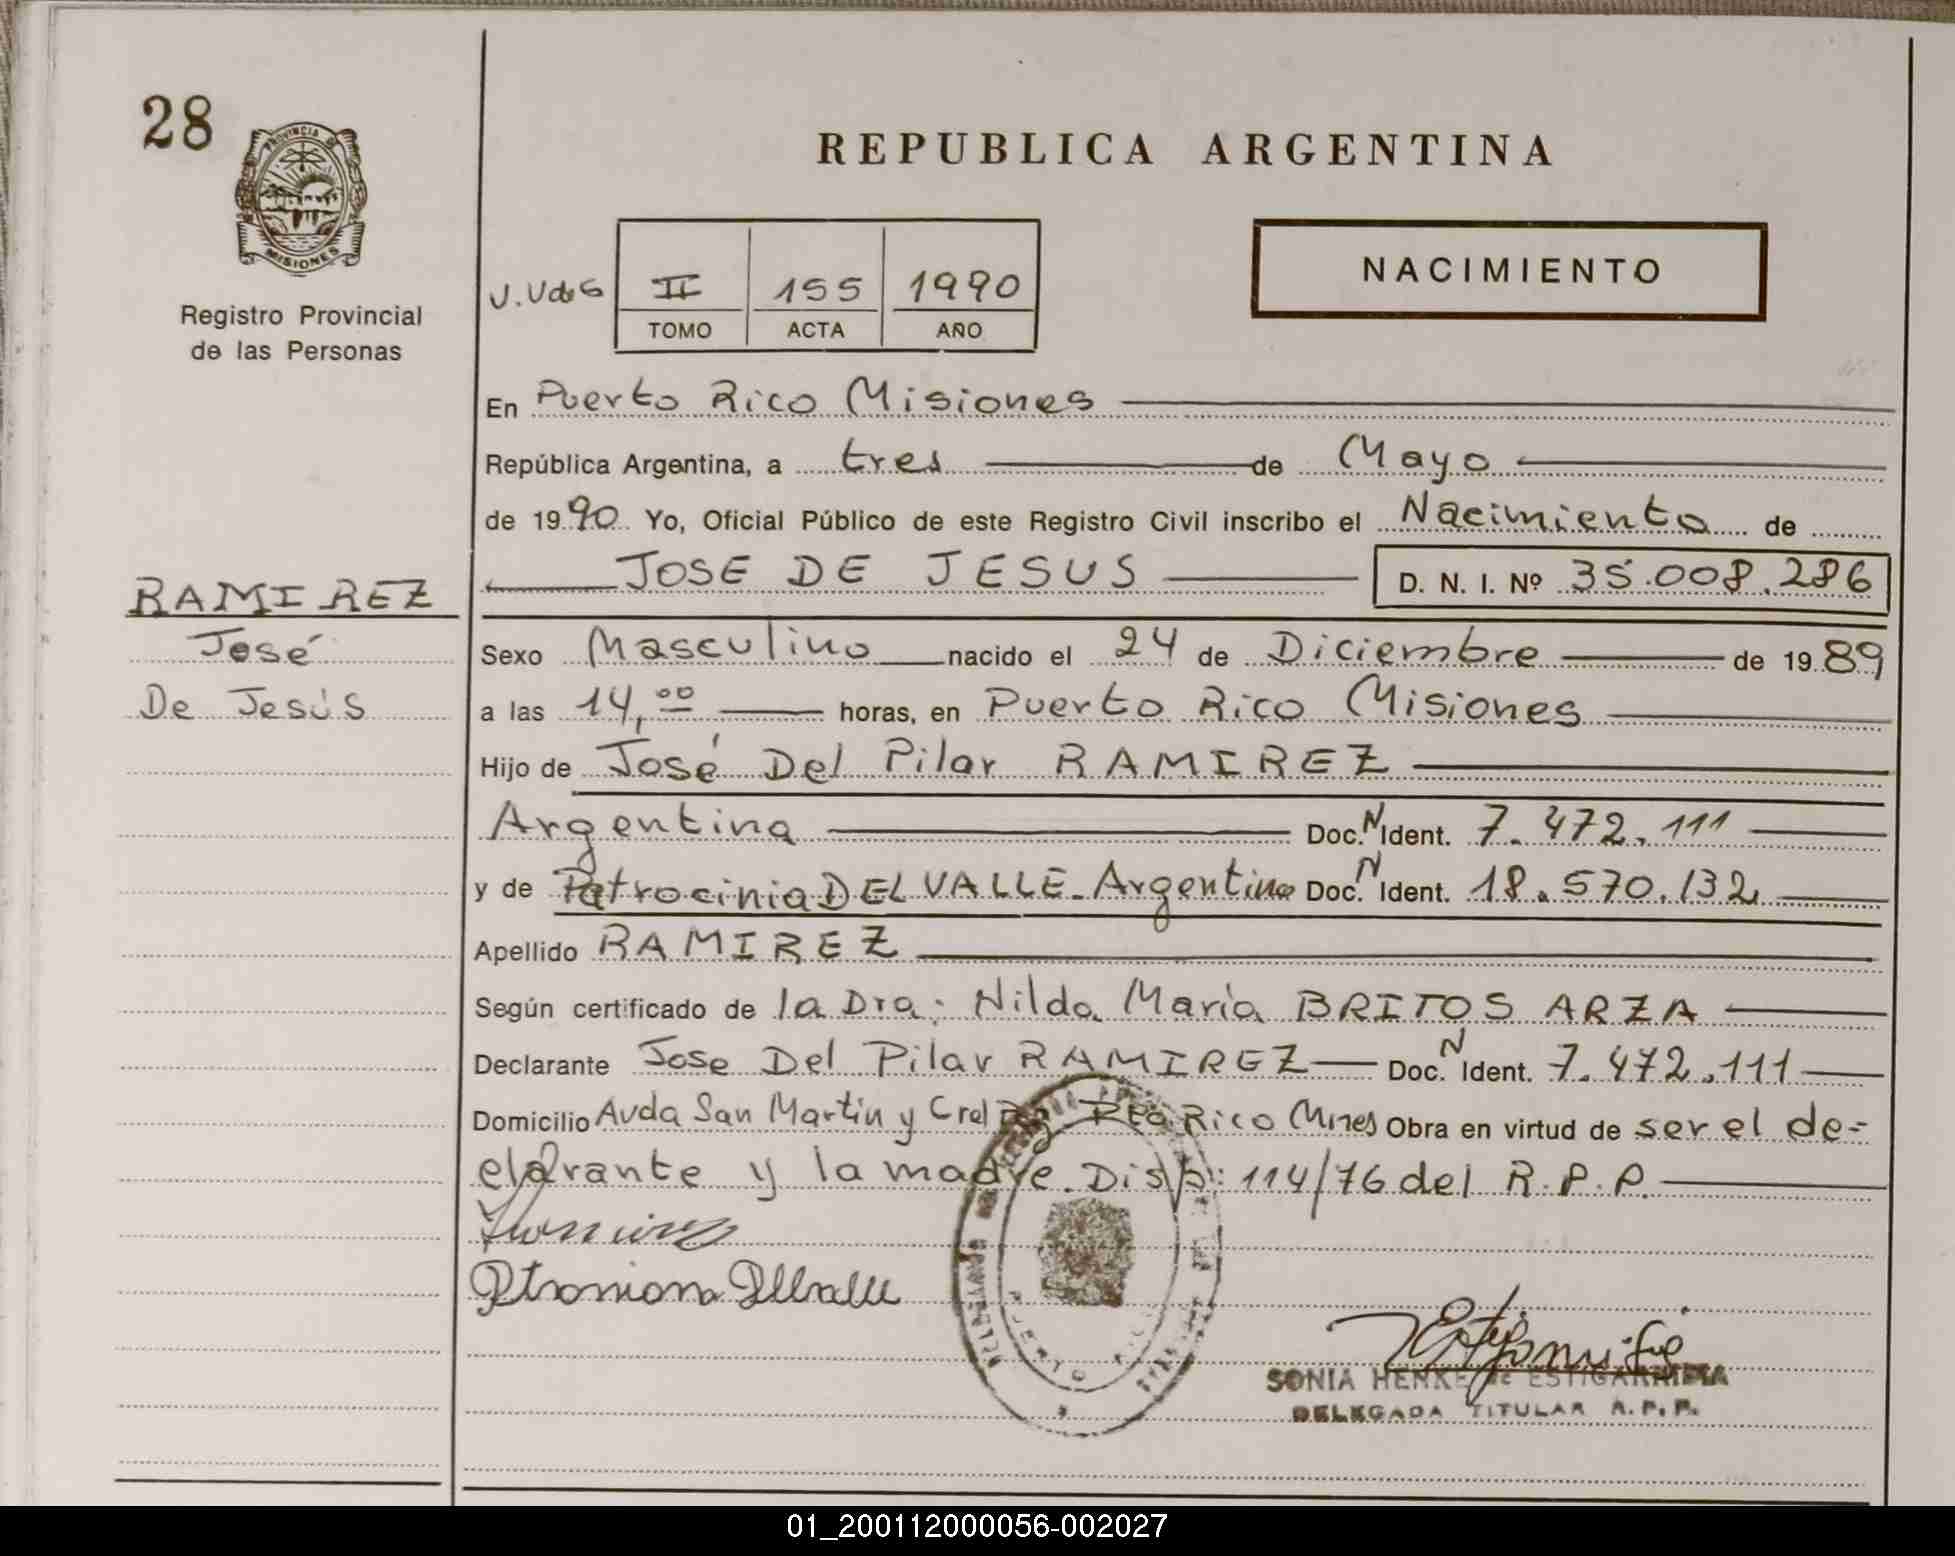 28
PROVINCIA DE
MISIONES
Registro Provincial
de las Personas
REPUBLICA ARGENTINA
II 155 1990
TOMO ACTA AÑO
NACIMIENTO
En Puerto Rico Misiones
República Argentina, a tres de Mayo
de 1990 Yo, Oficial Público de este Registro Civil inscribo el Nacimiento de
JOSE DE JESUS D. N. I. Nº 35.008.286
RAMIREZ
José
De Jesús
Sexo Masculino nacido el 24 de Diciembre de 1989
a las 14,00 horas, en Puerto Rico Misiones
Hijo de José Del Pilar RAMIREZ
Argentina Doc. N Ident. 7.472.111
y de Patrocinia DEL VALLE - Argentina Doc. N Ident. 18.570.132
Apellido RAMIREZ
Según certificado de la Dra: Nilda María BRITOS ARZA
Declarante Jose Del Pilar RAMIREZ Doc. N Ident. 7.472.111
Domicilio Avda San Martin y Pto Rico Mnes Obra en virtud de ser el de-
clarante y la madre. Disp: 114/76 del R.P.P.
SONIA HENKE de ESTIGARRIBIA
DELEGADA TITULAR R.P.P.
PUERTO RICO
01_200112000056-002027